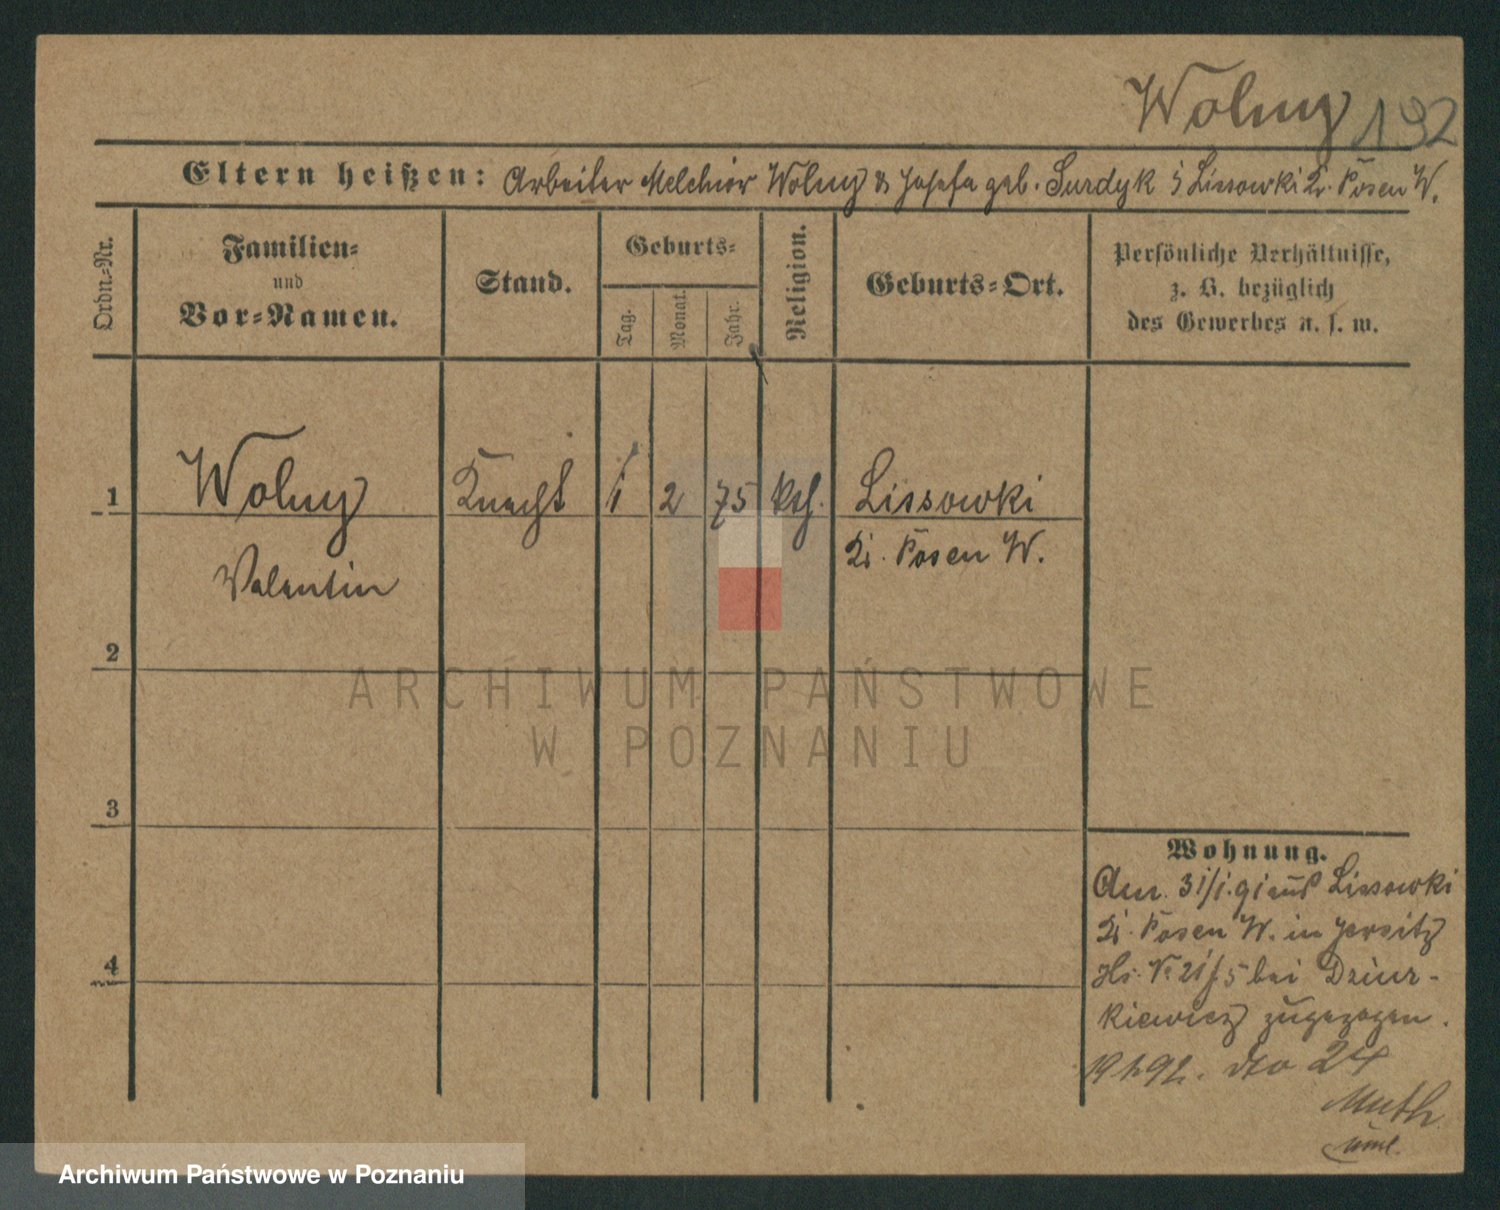 Wolny 192
Eltern heißen: Arbeiter Melchior Wolny & Josefa geb. Surdyk Lissowki Kr. Posen W.
Ordn.-Nr.
Familien-
und
Vor-Namen.
Stand.
Geburts-
Tag.
Monat.
Jahr.
Religion.
Geburts-Ort.
Persönliche Verhältnisse,
z. B. bezüglich
des Gewerbes u. s. w.
1
Wolny
Knecht
1
2
75
kth.
Lissowki
Kr. Posen W.
Valentin
2
3
4
Wohnung.
Am 31/1.91 aus Lissowki
Kr. Posen W. in Jersitz
Hs. No 21/5 bei Dziur-
kiewicz zugezogen.
dto 24
Muth
ARCHIWUM PAŃSTWOWE
W POZNANIU
Archiwum Państwowe w Poznaniu